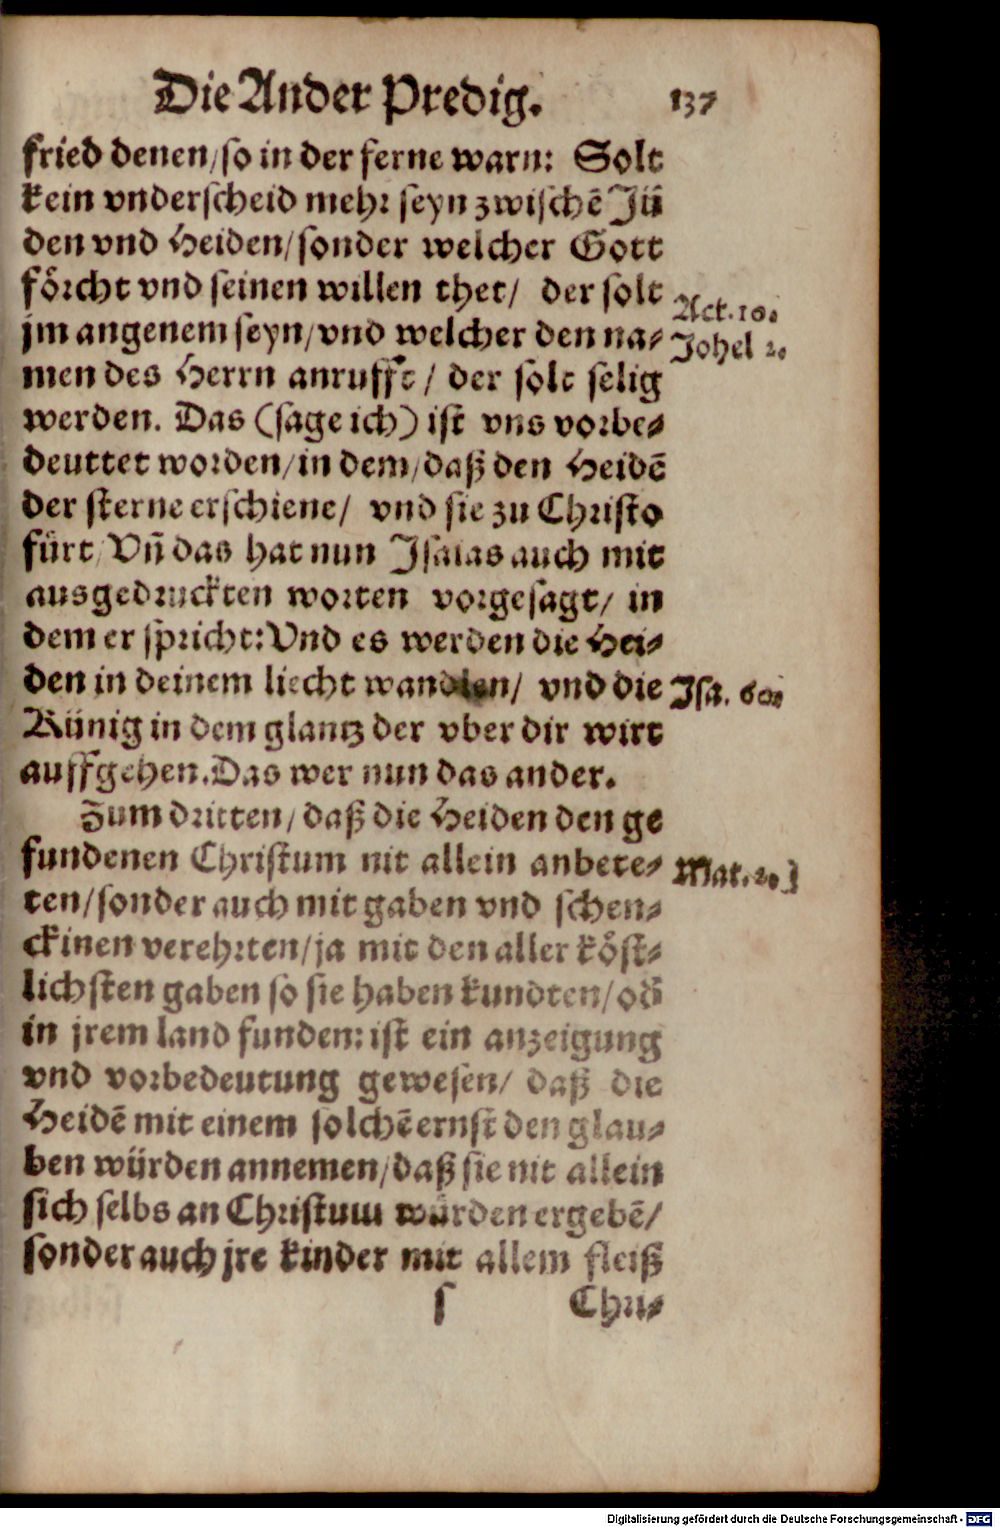 Die Ander Predig. 137
fried denen/so in der ferne warn: Solt
kein vnderscheid mehr seyn zwischē Jü
den vnd Heiden/sonder welcher Gott
förcht vnd seinen willen thet/ der solt
Act. 10.
jm angenem seyn/vnd welcher den na-
Johel 2.
men des Herrn anrufft/ der solt selig
werden. Das (sage ich) ist vns vorbe-
deuttet worden/in dem/daß den Heidē
der sterne erschiene/ vnd sie zu Christo
fürt/Vn̄ das hat nun Jsaias auch mit
ausgedruckten worten vorgesagt/ in
dem er spricht:Vnd es werden die Hei-
den in deinem liecht wandlen/ vnd die
Jsa. 60.
Künig in dem glantz der vber dir wirt
auffgehen.Das wer nun das ander.
Zum dritten/daß die Heiden den ge
fundenen Christum nit allein anbete-
Mat. 2.
ten/sonder auch mit gaben vnd schen-
ckinen verehrten/ja mit den aller köst-
lichsten gaben so sie haben kundten/od̄
in jrem land funden: ist ein anzeigung
vnd vorbedeutung gewesen/ daß die
Heidē mit einem solchē ernst den glau-
ben würden annemen/daß sie nit allein
sich selbs an Christum würden ergebē/
sonder auch jre kinder mit allem fleiß
s Chri-
Digitalisierung gefördert durch die Deutsche Forschungsgemeinschaft - DFG